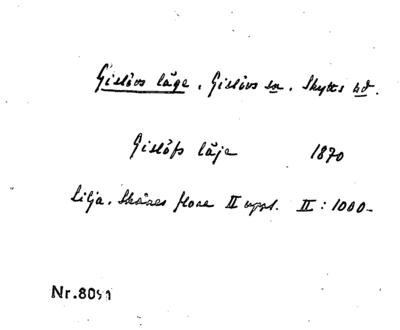 Gislövs läge. Gislövs sn. Skytts hd.
Gislöfs läje 1870
Lilja. Skånes flora II uppl. II: 1000-
Nr.8091